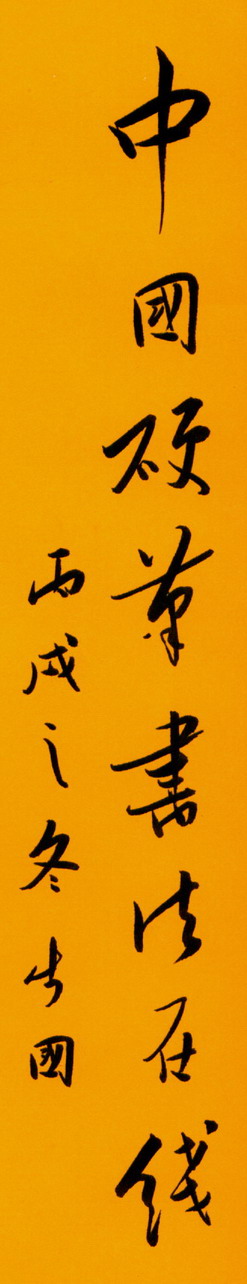 中國硬筆書法在线
丙戌之冬
國